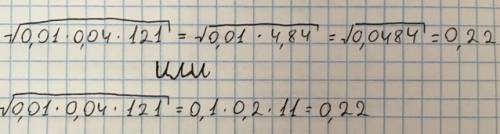 √0,01·0,04·121 = √0,01·4,84 = √0,0484 = 0,22
или
√0,01·0,04·121 = 0,1·0,2·11 = 0,22